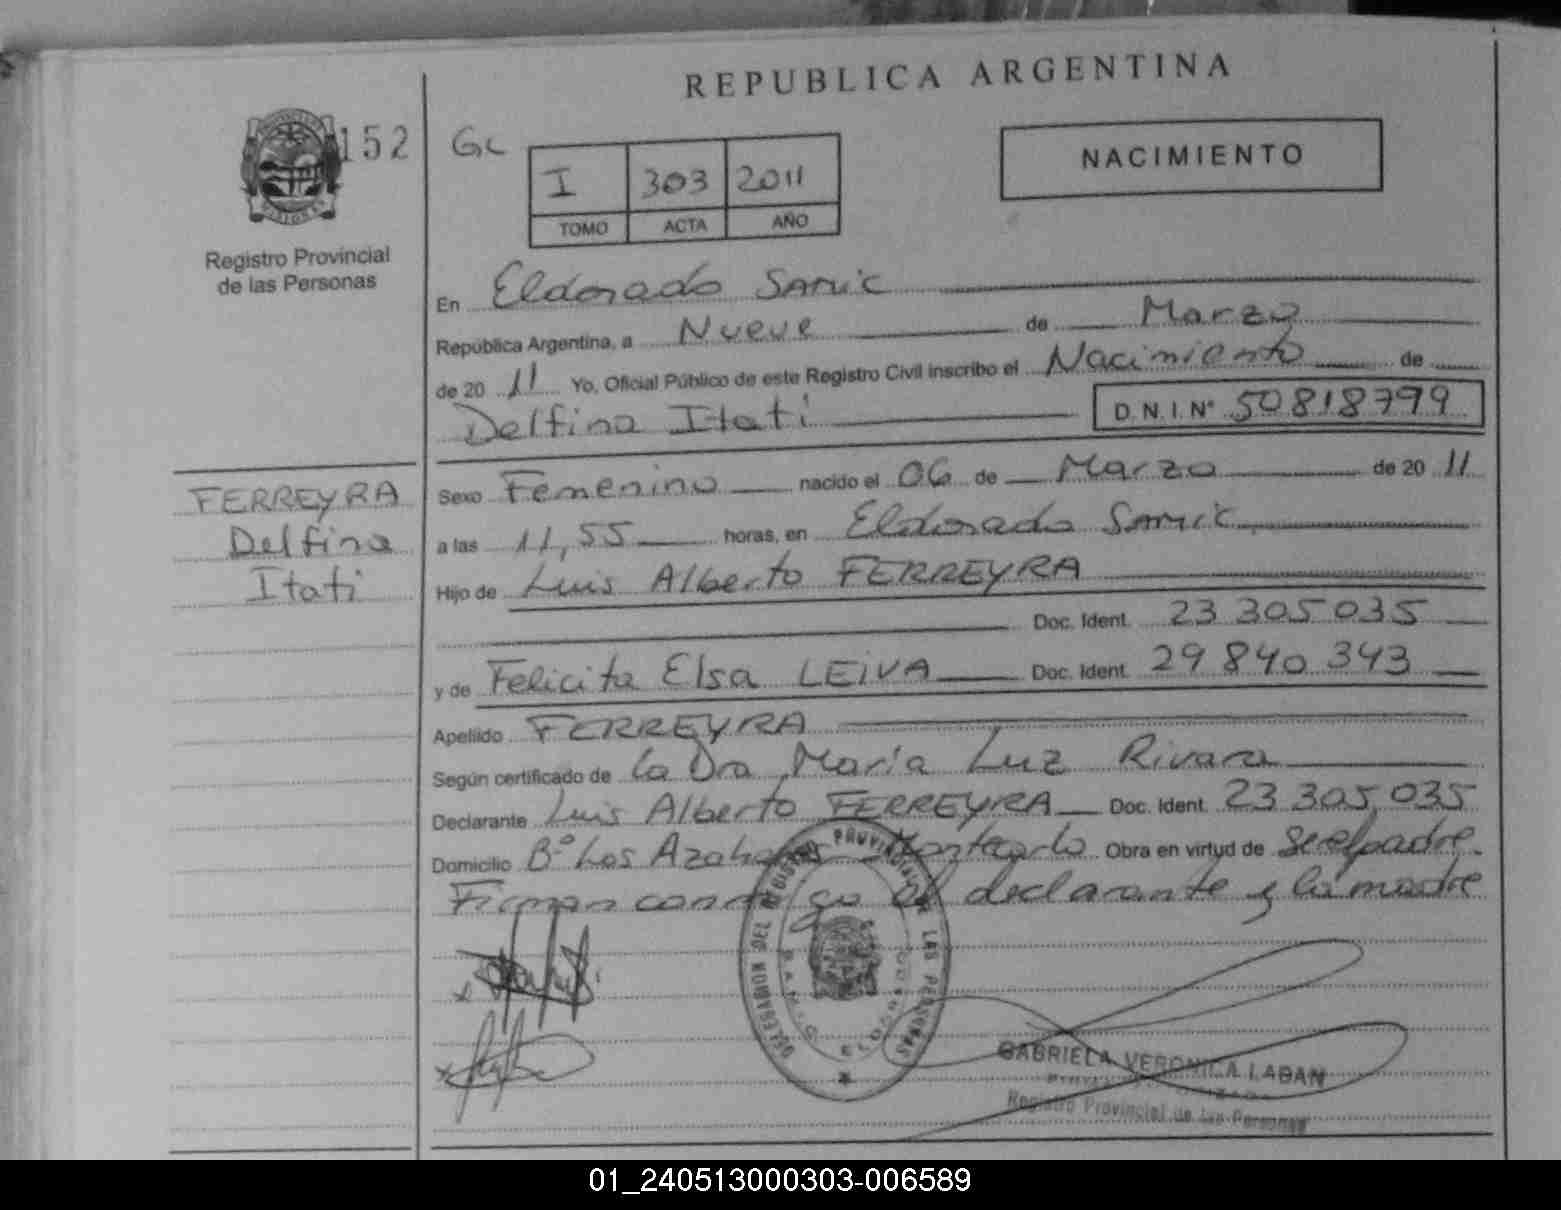 REPUBLICA ARGENTINA
152
GL
NACIMIENTO
I 303 2011
TOMO ACTA AÑO
Registro Provincial
de las Personas
En Eldorado Samic
República Argentina, a Nueve de Marzo
de 20 11 Yo, Oficial Público de este Registro Civil inscribo el Nacimiento de
Delfina Itati D.N.I. Nº 50818799
FERREYRA
Delfina
Itati
Sexo Femenino nacido el 06 de Marzo de 20 11
a las 11,55 horas, en Eldorado Samic
Hijo de Luis Alberto FERREYRA
Doc. Ident. 23 305 035
y de Felicita Elsa LEIVA Doc. Ident. 29 840 343
Apellido FERREYRA
Según certificado de la Dra María Luz Rivara
Declarante Luis Alberto FERREYRA Doc. Ident. 23 305 035
Domicilio Bº Los Azahares Montecarlo Obra en virtud de ser el padre.
Firman conmigo el declarante y la madre
DELEGACION DEL REGISTRO PROVINCIAL DE LAS PERSONAS
SAMIC ELDORADO
GABRIELA VERONICA LABAN
Registro Provincial de las Personas
01_240513000303-006589